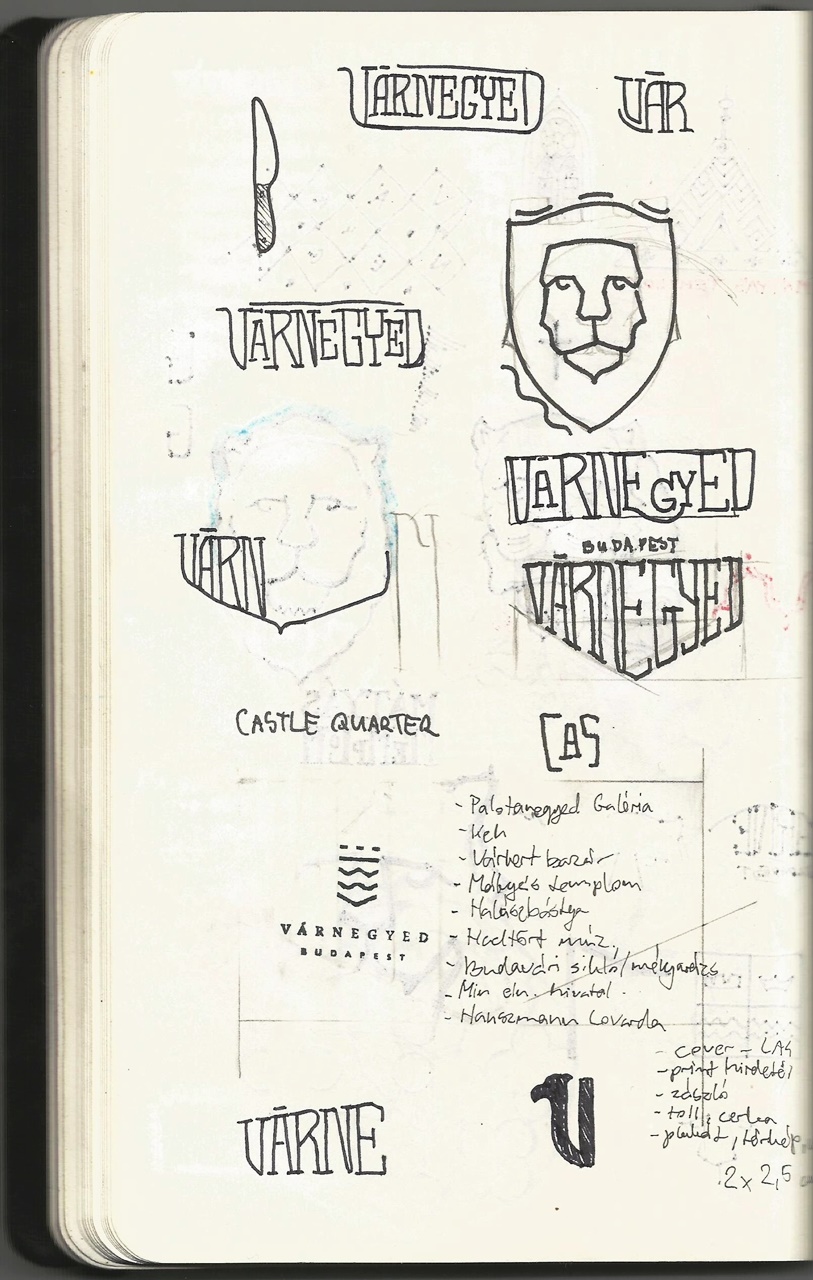 VÁRNEGYED
VÁR
VÁRNEGYED
VÁRNEGYED
BUDAPEST
VÁRN
VÁRNEGYED
CASTLE QUARTER
CAS
- Palotanegyed Galéria
- Várkert bazár
- Mátyás templom
- Halászbástya
- Hadtört múz.
- Budavári sikló/mélygarázs
VÁRNEGYED
BUDAPEST
- Min eln. hivatal.
- Hauszmann Lovarda
- cover - CAS
- print hirdetés
- zászló
- toll, ceruza
- plakát, térkép
VÁRNE
2x 2,5